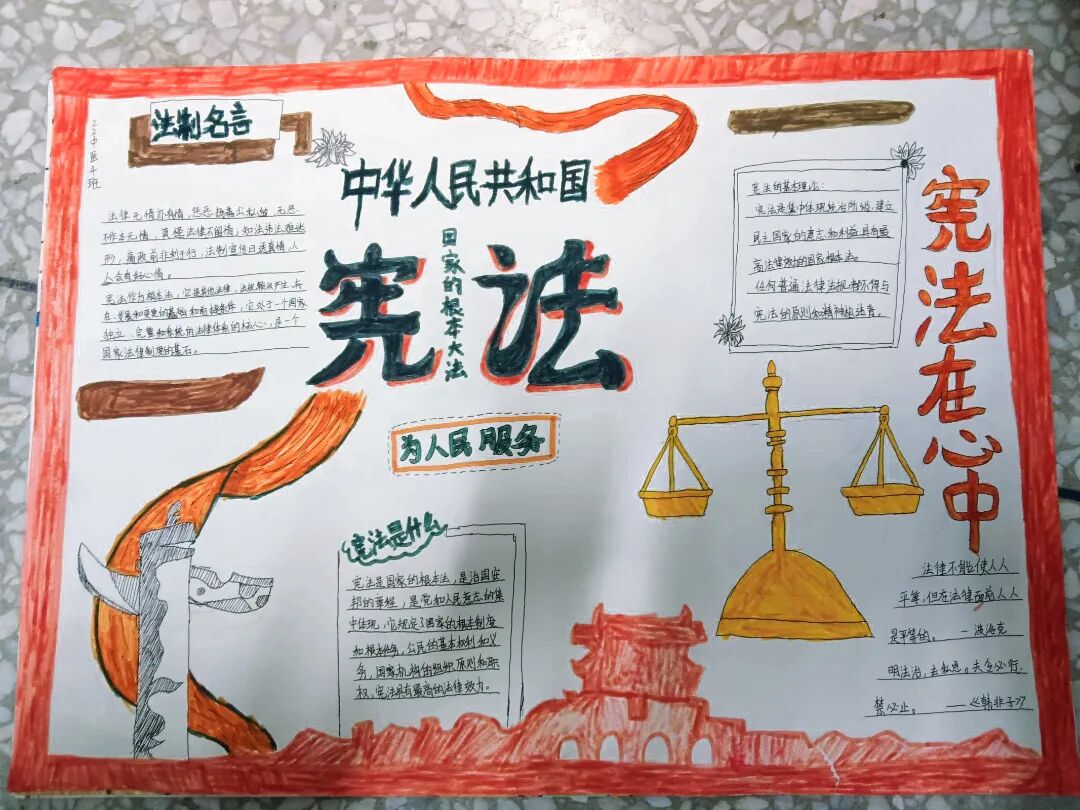 22中医4班
法制名言
法律无情亦有情,惩恶扬善公私分,无恶
不作本无情,莫怪法律不留情,知法洗法难逃
刑,痛改前非利于行,法制宣传日透真情,人
人会有好心情。
宪法作为根本法,它是其他法律、法规赖以产生、存
在、发展和变更的基础和前提条件,它处于一个国家
独立、完整和系统的法律体系的核心,是一个
国家法律制度的基石。
中华人民共和国
宪法
国家的根本大法
为人民服务
宪法是什么
宪法是国家的根本法,是治国安
邦的章程,是党和人民意志的集
中体现,它规定了国家的根本制度
和根本任务,公民的基本权利和义
务,国家机构的组织原则和职
权,宪法具有最高的法律效力。
宪法的基本理论:
宪法是集中体现统治阶级建立
民主国家的意志和利益具有最
高法律效力的国家根本法。
任何普通法律法规都不得与
宪法的原则和精神相违背。
宪法在心中
法律不能使人人
平等,但在法律面前人人
是平等的。 —波洛克
明法治,去私恩。夫令必行,
禁必止。 ——《韩非子》